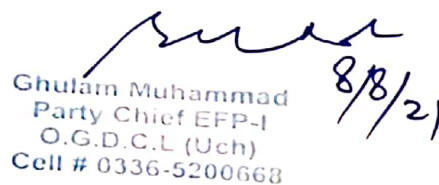 8/8/21
Ghulam Muhammad
Party Chief EFP-I
O.G.D.C.L (Uch)
Cell # 0336-5200668